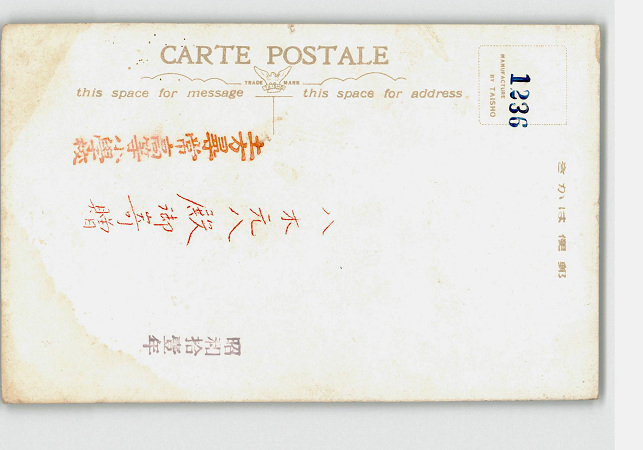 CARTE POSTALE
TRADE MARK
this space for message
this space for address
MANUFACTURE
BY TAISHO
1,236
土方尋常高等小學校
八木元八殿御寄贈
昭和拾壹年
郵便はかき